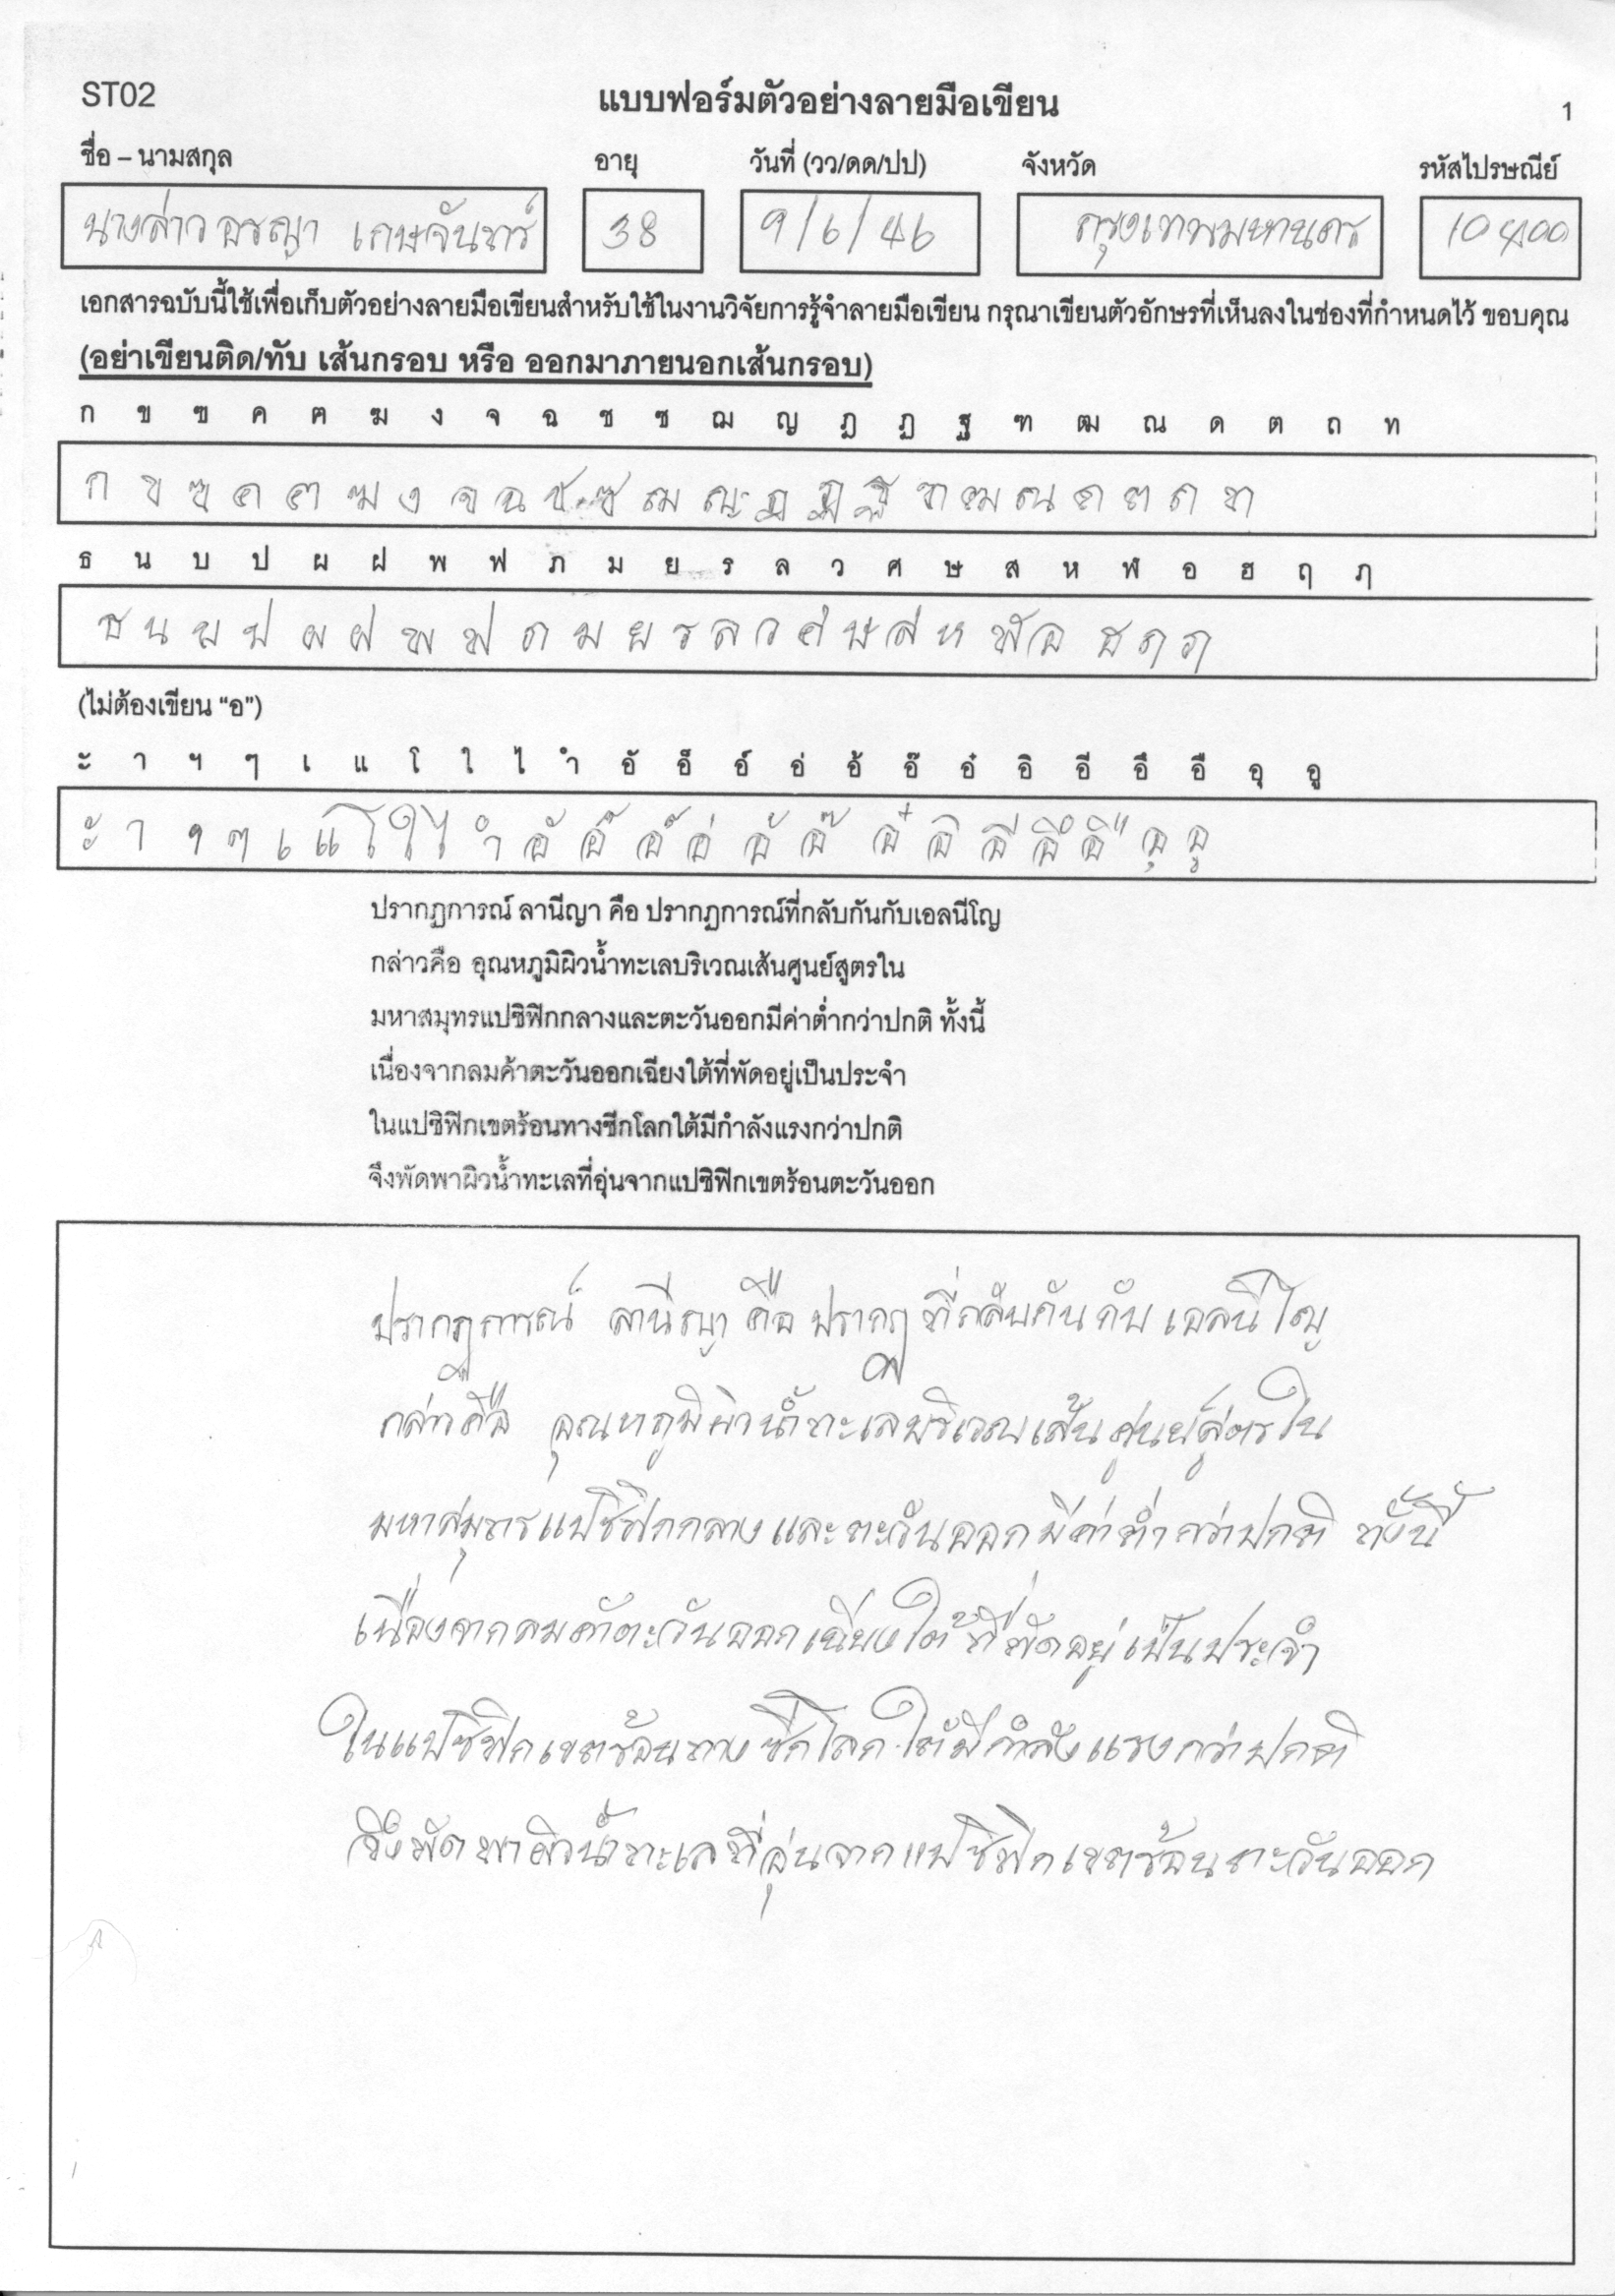 ST02
แบบฟอร์มตัวอย่างลายมือเขียน
1
ชื่อ – นามสกุล อายุ วันที่ (วว/ดด/ปป) จังหวัด รหัสไปรษณีย์
นางสาว อรญา เกษจันทร์ 38 9/6/46 กรุงเทพมหานคร 10400
เอกสารฉบับนี้ใช้เพื่อเก็บตัวอย่างลายมือเขียนสำหรับใช้ในงานวิจัยการรู้จำลายมือเขียน กรุณาเขียนตัวอักษรที่เห็นลงในช่องที่กำหนดไว้ ขอบคุณ
(อย่าเขียนติด/ทับ เส้นกรอบ หรือ ออกมาภายนอกเส้นกรอบ)
ก ข ฃ ค ฅ ฆ ง จ ฉ ช ซ ฌ ญ ฎ ฏ ฐ ฑ ฒ ณ ด ต ถ ท
ก ข ฃ ค ฅ ฆ ง จ ฉ ช ซ ฌ ญ ฎ ฏ ฐ ฑ ฒ ณ ด ต ถ ท
ธ น บ ป ผ ฝ พ ฟ ภ ม ย ร ล ว ศ ษ ส ห ฬ อ ฮ ฤ ฦ
ธ น บ ป ผ ฝ พ ฟ ภ ม ย ร ล ว ศ ษ ส ห ฬ อ ฮ ฤ ฦ
(ไม่ต้องเขียน “อ”)
ะ า ฯ ๆ เ แ โ ใ ไ ำ อั อ็ อ์ อ่ อ้ อ๊ อ๋ อิ อี อึ อื อุ อู
ะ า ฯ ๆ เ แ โ ใ ไ ำ อั อ็ อ์ อ่ อ้ อ๊ อ๋ อิ อี อึ อื อุ อู
ปรากฏการณ์ ลานีญา คือ ปรากฏการณ์ที่กลับกันกับเอลนีโญ
กล่าวคือ อุณหภูมิผิวน้ำทะเลบริเวณเส้นศูนย์สูตรใน
มหาสมุทรแปซิฟิกกลางและตะวันออกมีค่าต่ำกว่าปกติ ทั้งนี้
เนื่องจากลมค้าตะวันออกเฉียงใต้ที่พัดอยู่เป็นประจำ
ในแปซิฟิกเขตร้อนทางซีกโลกใต้มีกำลังแรงกว่าปกติ
จึงพัดพาผิวน้ำทะเลที่อุ่นจากแปซิฟิกเขตร้อนตะวันออก
ปรากฏการณ์ ลานีญา คือ ปรากฏ ที่กลับกัน กับ เอลนีโญ
กล่าวคือ อุณหภูมิผิวน้ำทะเลบริเวณเส้นศูนย์สูตรใน
มหาสมุทรแปซิฟิกกลาง และตะวันออกมีค่าต่ำกว่าปกติ ทั้งนี้
เนื่องจากลมค้าตะวันออกเฉียงใต้ ที่พัดอยู่เป็นประจำ
ในแปซิฟิกเขตร้อนทาง ซีกโลกใต้มีกำลังแรงกว่าปกติ
จึงพัดพาผิวน้ำทะเลที่อุ่นจากแปซิฟิกเขตร้อนตะวันออก